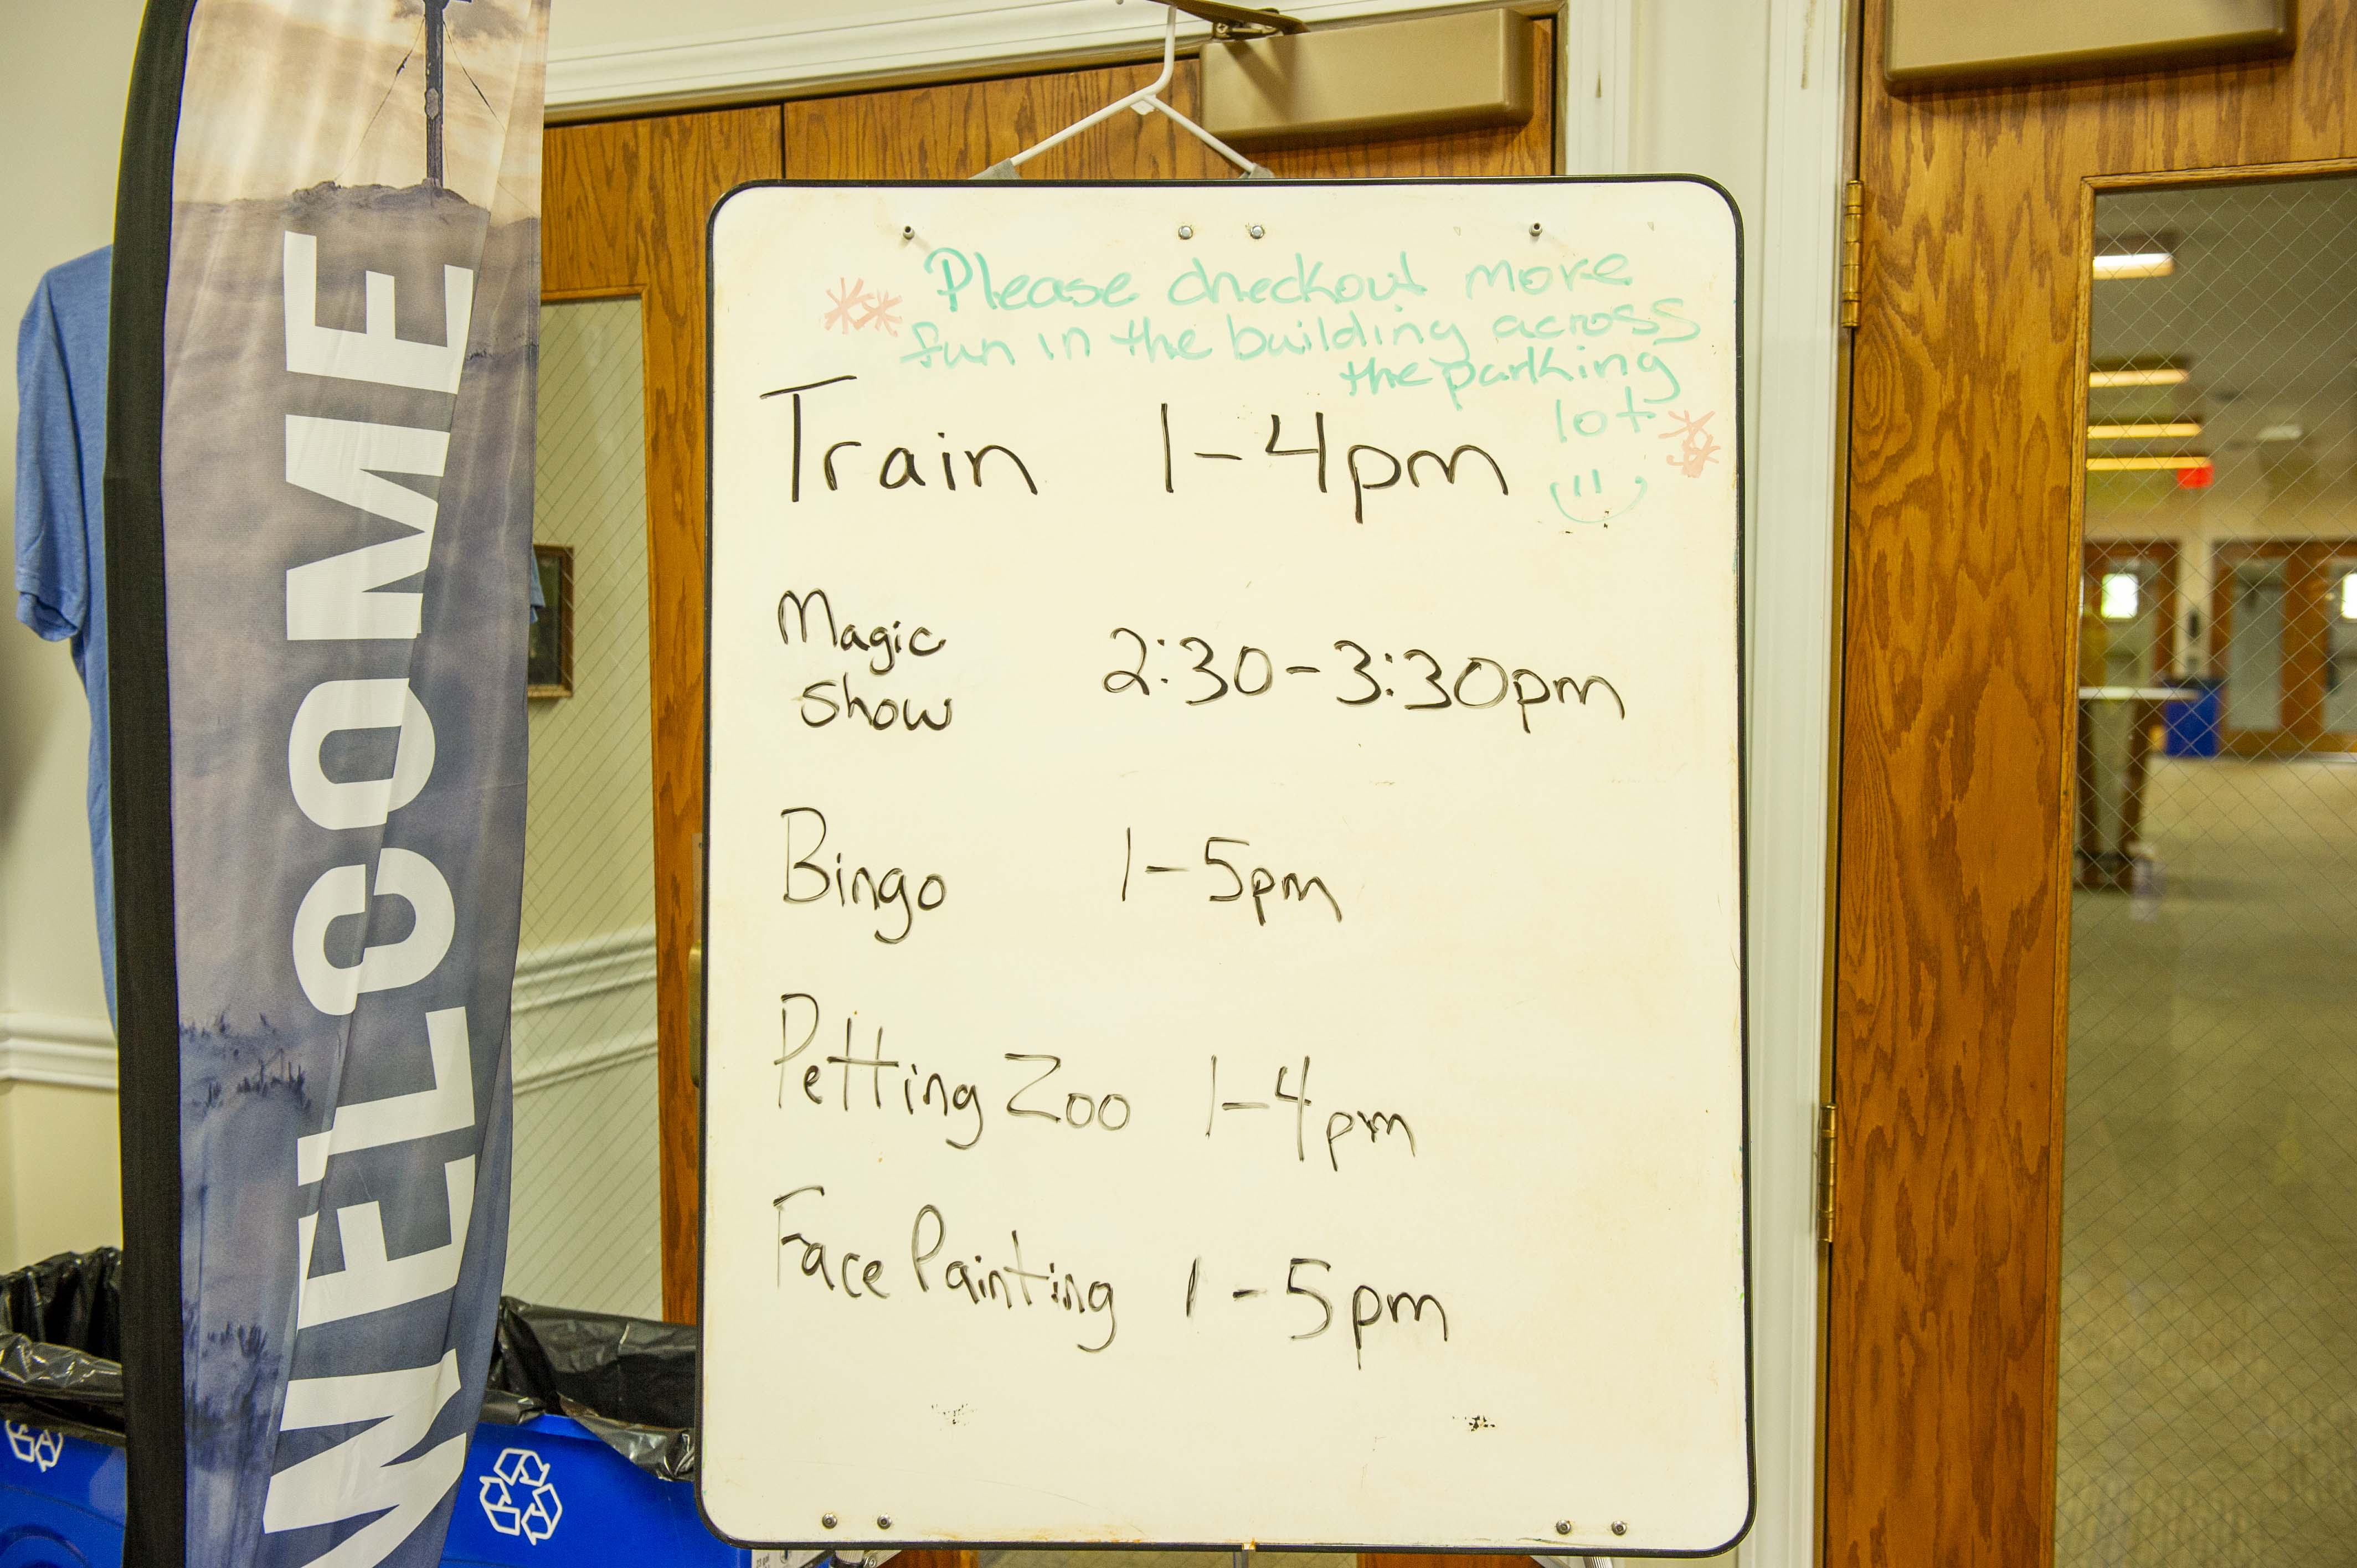 WELCOME
** Please checkout more
fun in the building across
the parking
lot **
Train 1-4pm
Magic
Show 2:30-3:30pm
Bingo 1-5pm
Petting Zoo 1-4pm
Face Painting 1-5pm